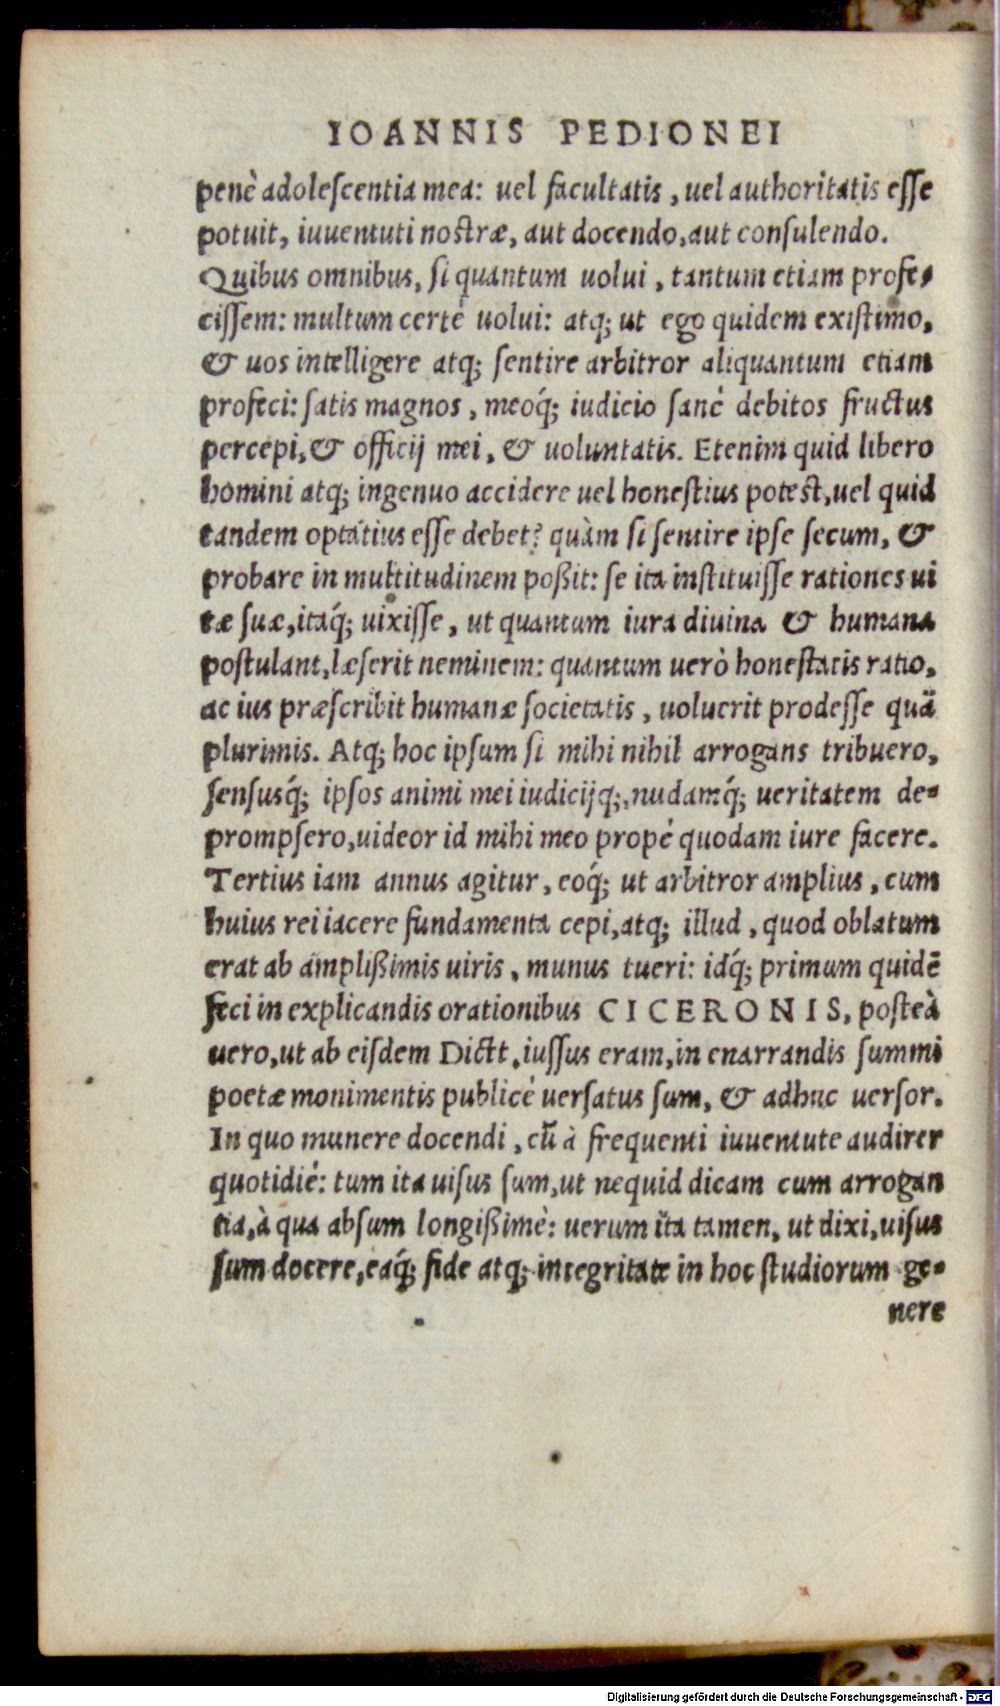 IOANNIS PEDIONEI
penè adoleſcentia mea: uel facultatis, uel authoritatis eſſe
potuit, iuuentuti noſtræ, aut docendo, aut conſulendo.
Quibus omnibus, ſi quantum uolui, tantum etiam profe-
ciſſem: multum certè uolui: atq; ut ego quidem exiſtimo,
& uos intelligere atq; ſentire arbitror aliquantum etiam
profeci: ſatis magnos, meoq́; iudicio ſanè debitos fructus
percepi, & officij mei, & uoluntatis. Etenim quid libero
homini atq; ingenuo accidere uel honeſtius poteſt, uel quid
tandem optátius eſſe debet? quàm ſi ſentire ipſe ſecum, &
probare in multitudinem poßit: ſe ita inſtituiſſe rationes ui
tæ ſuæ, itaq́; uixiſſe, ut quantum iura diuina & humana
poſtulant, læſerit neminem: quantum uerò honeſtatis ratio,
ac ius præſcribit humanæ ſocietatis, uoluerit prodeſſe quã
plurimis. Atq; hoc ipſum ſi mihi nihil arrogans tribuero,
ſenſusq́; ipſos animi mei iudicijq;, nudamq́; ueritatem de-
prompſero, uideor id mihi meo propè quodam iure facere.
Tertius iam annus agitur, eoq́; ut arbitror amplius, cum
huius rei iacere fundamenta cepi, atq; illud, quod oblatum
erat ab amplißimis uiris, munus tueri: idq́; primum quidẽ
feci in explicandis orationibus CICERONIS, poſteà
uero, ut ab eiſdem Dictt. iuſſus eram, in enarrandis ſummi
poetæ monimentis publicè uerſatus ſum, & adhuc uerſor.
In quo munere docendi, cũ à frequenti iuuentute audirer
quotidiè: tum ita uiſus ſum, ut nequid dicam cum arrogan
tia, à qua abſum longißimè: uerum ita tamen, ut dixi, uiſus
ſum docere, eaq́; fide atq; integritate in hoc ſtudiorum ge-
nere
Digitalisierung gefördert durch die Deutsche Forschungsgemeinschaft - DFG